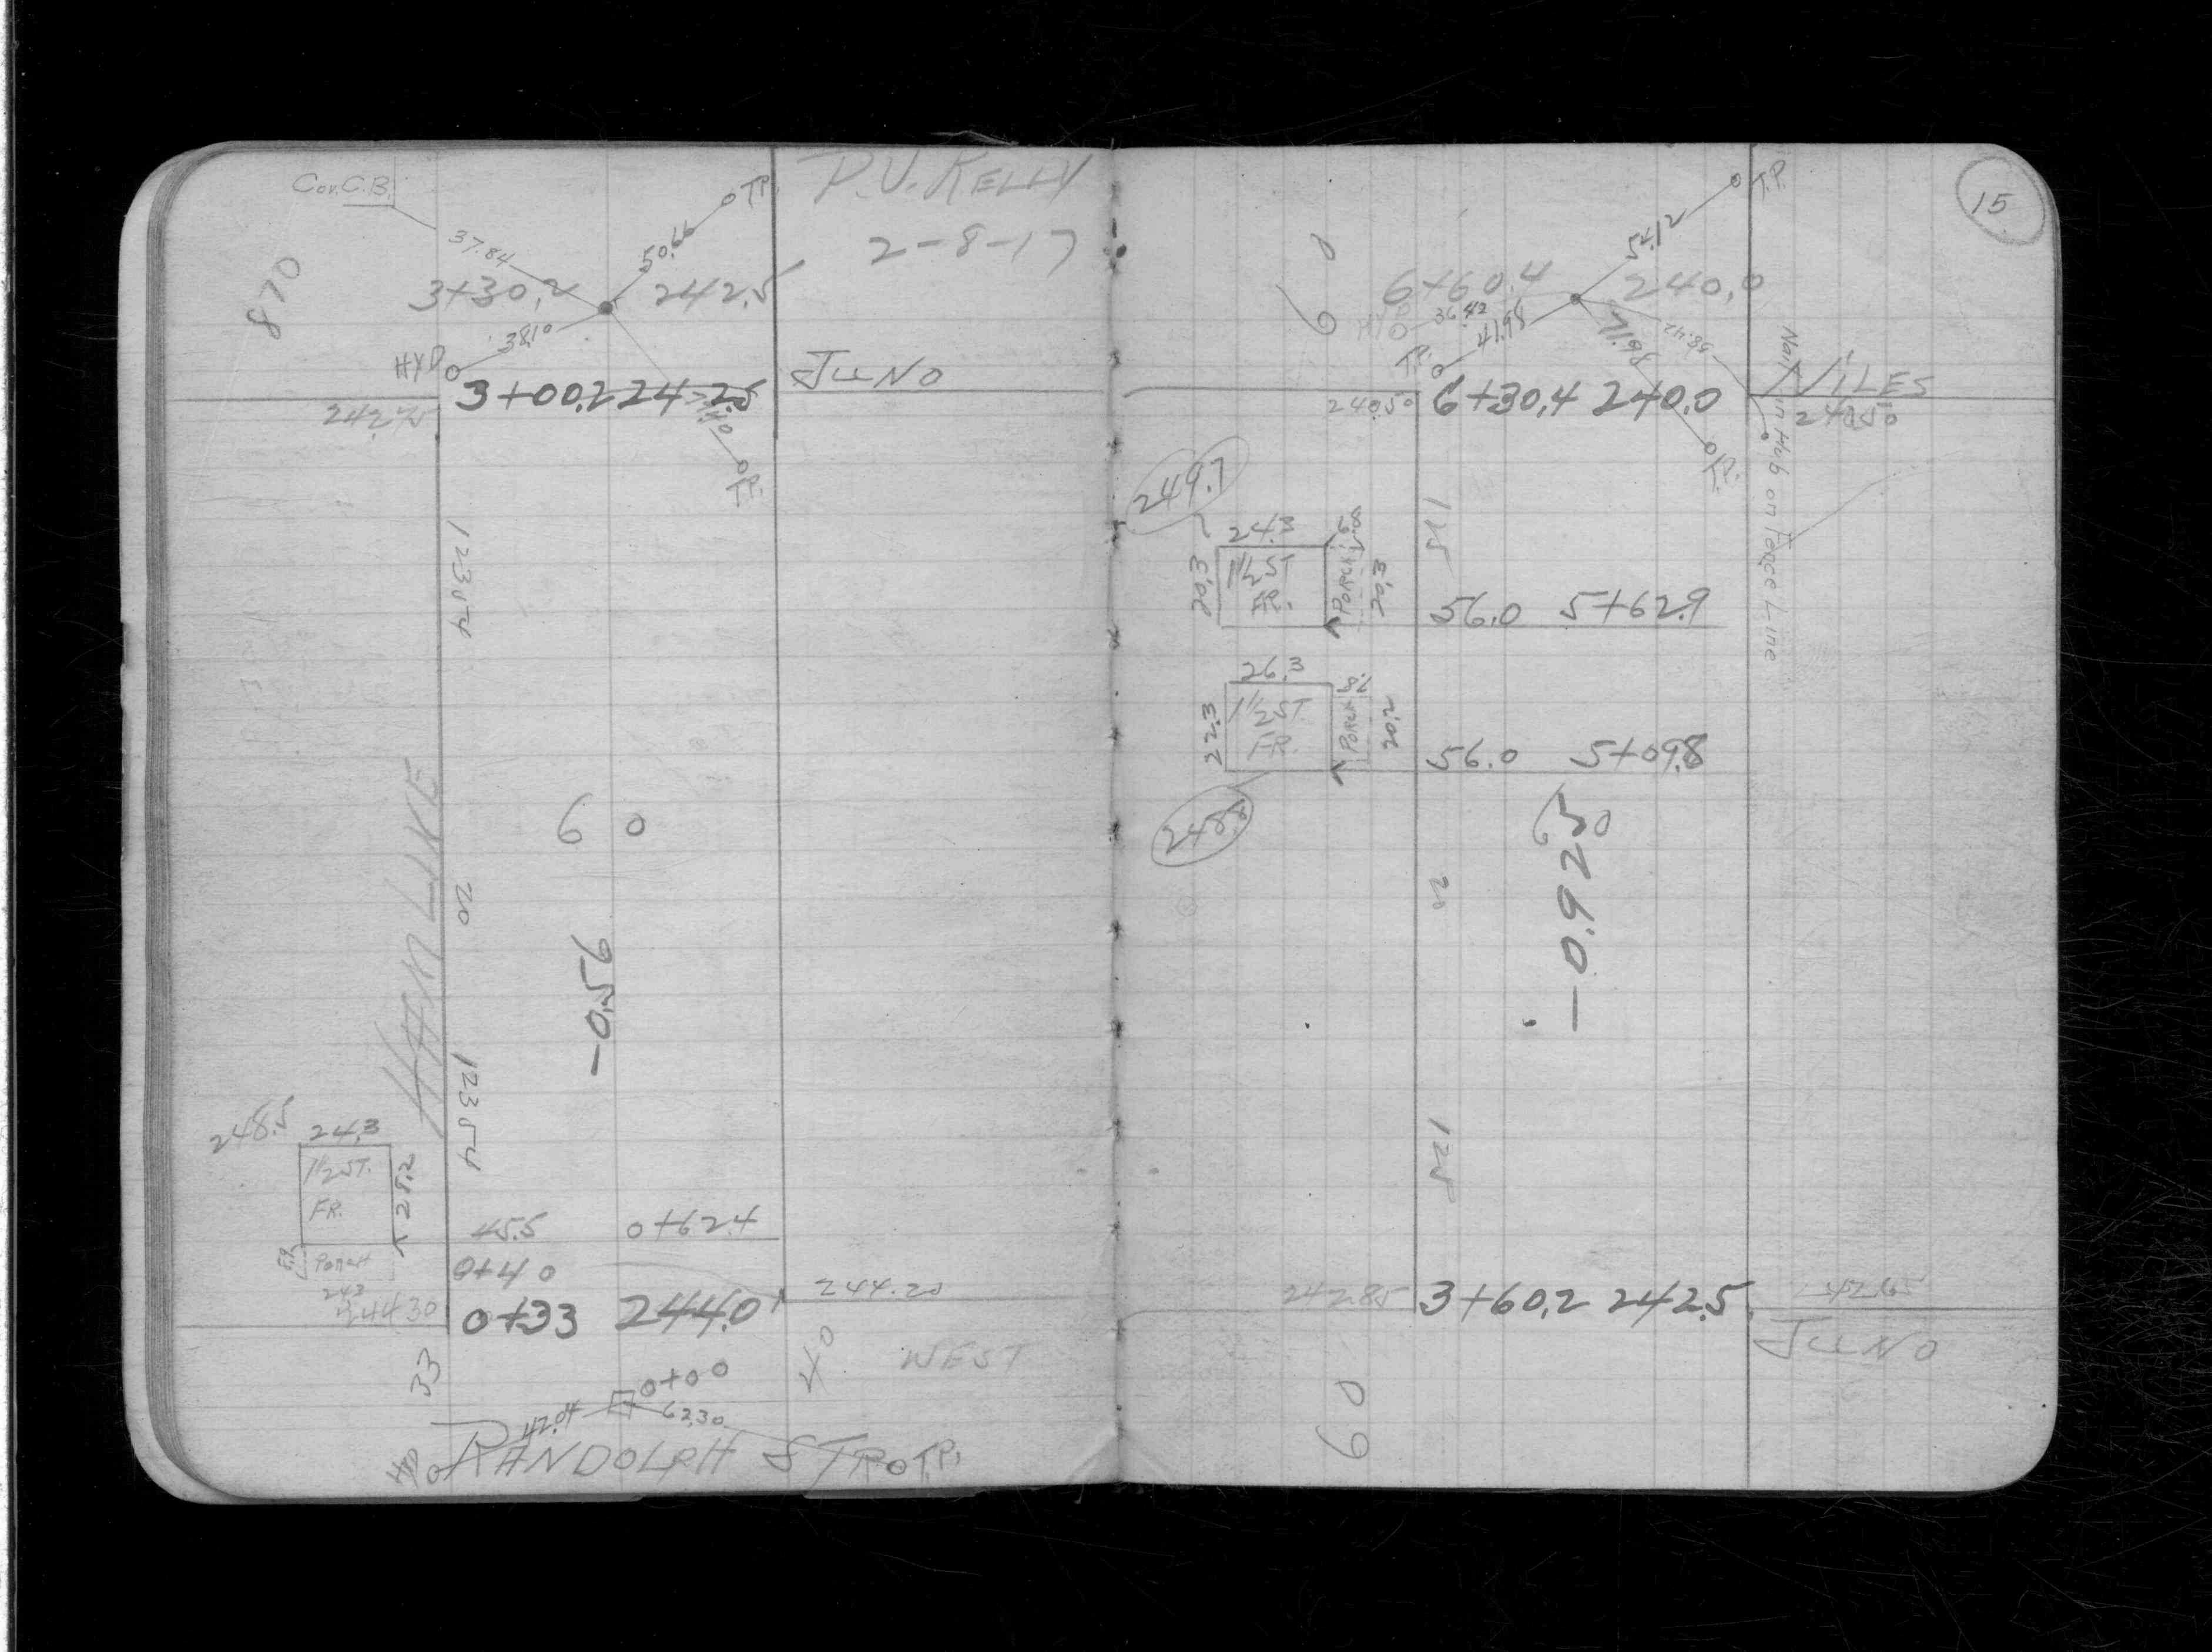 Cov. C.B.
T.P.
P.J. KELLY
37.84
50.66
2-8-17
870
3+30.2
242.5
38.10
HYD
JUNO
3+00.2 242.5
242.75
T.P.
123.54
6 0
20
-0.59
HAMLIKE
123.54
248.5
24.3
1½ ST.
FR.
28.2
45.5 0+62.4
PORCH
24.3
0+40
244.30
0+33 244.0
244.20
33
40
WEST
0+00
42.04
62.30
HYD
RANDOLPH ST
T.P.
15
T.P.
54.12
60
6+60.4
240.0
HYD
36.42
41.98
71.98
58.42
T.P.
Nail in Hub on Fence Line
NILES
240.50
6+30.4 240.0
240.50
T.P.
249.7
125
24.3
1½ ST
FR.
PORCH
20.3
20.3
56.0 5+62.9
26.3
7.8
1½ ST.
FR.
PORCH
22.3
20.2
56.0 5+09.8
248.1
60
20
-0.925
125
242.85
3+60.2 242.5
242.65
JUNO
60